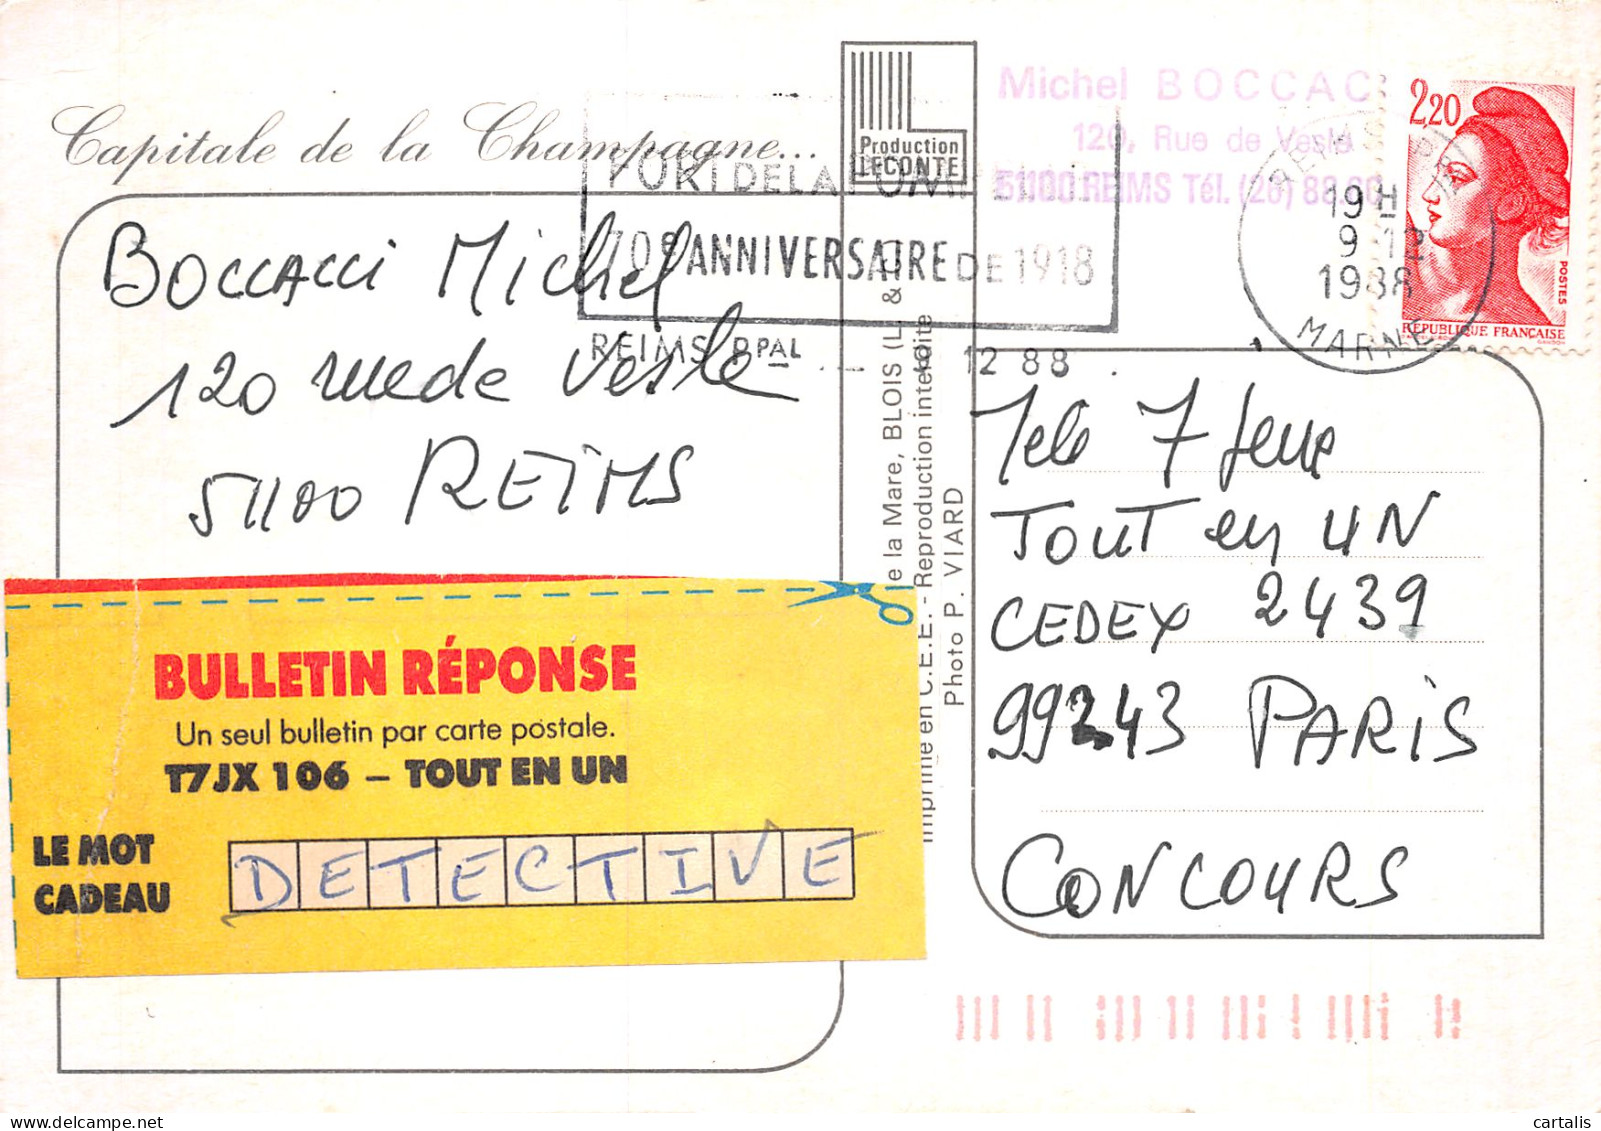 Capitale de la Champagne...
Production
LECONTE
Michel BOCCAC
120, Rue de Vesle
51100 REIMS Tél. (26) 88.
2,20
POSTES
RÉPUBLIQUE FRANÇAISE
REIMS PPAL
19H
9 12
1988
MARNE
70e ANNIVERSAIRE DE 1918
REIMS PPAL
9 12 88
BOCCACCI Michel
120 rue de Vesle
51100 REIMS
Tele 7 Jeux
TOUT en UN
CEDEX 2439
99243 PARIS
CONCOURS
e la Mare, BLOIS (L. &
Imprimé en C.E.E. - Reproduction interdite
Photo P. VIARD
BULLETIN RÉPONSE
Un seul bulletin par carte postale.
T7JX 106 – TOUT EN UN
LE MOT
CADEAU
DETECTIVE
cartalis
www.delcampe.net